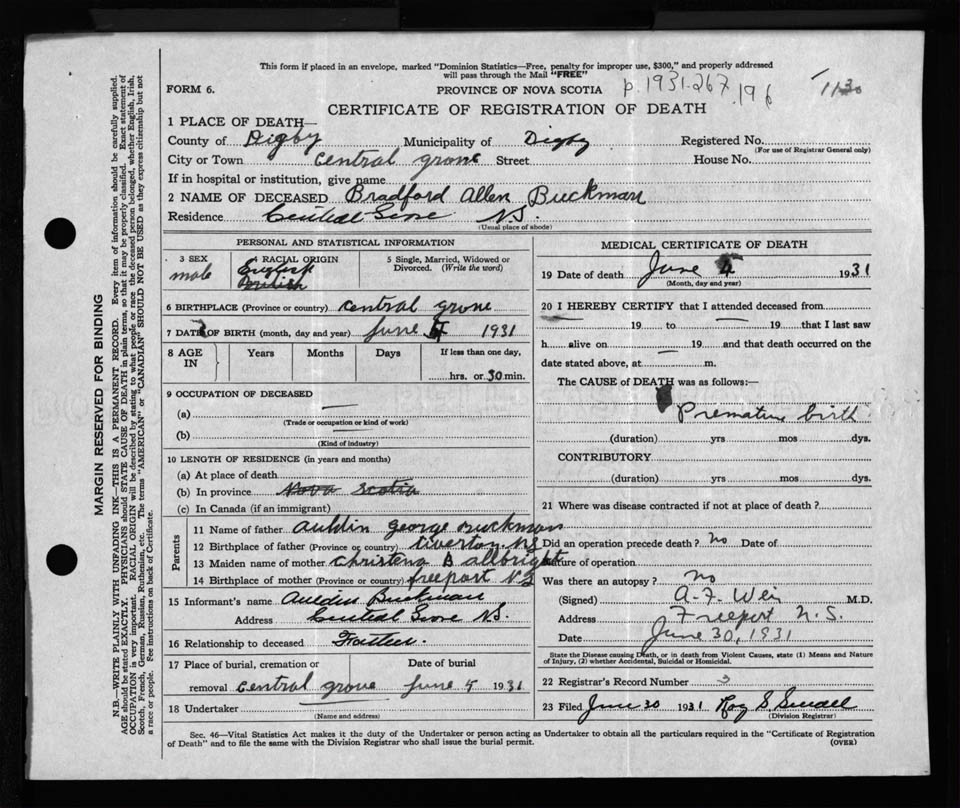 This form if placed in an envelope, marked "Dominion Statistics—Free, penalty for improper use, $300," and properly addressed
will pass through the Mail "FREE"
FORM 6.
PROVINCE OF NOVA SCOTIA
p. 1931.267.196
1130
CERTIFICATE OF REGISTRATION OF DEATH
1 PLACE OF DEATH—
County of Digby Municipality of Digby Registered No.
(For use of Registrar General only)
City or Town Central grove Street House No.
If in hospital or institution, give name
2 NAME OF DECEASED Bradford Allen Buckman
Residence Central Grove N.S.
(Usual place of abode)
PERSONAL AND STATISTICAL INFORMATION
3 SEX
male
4 RACIAL ORIGIN
English
5 Single, Married, Widowed or
Divorced. (Write the word)
6 BIRTHPLACE (Province or country) Central grove
7 DATE OF BIRTH (month, day and year) June 4 1931
8 AGE
IN
Years Months Days If less than one day,
hrs. or 30 min.
9 OCCUPATION OF DECEASED
(a)
(Trade or occupation or kind of work)
(b)
(Kind of industry)
10 LENGTH OF RESIDENCE (in years and months)
(a) At place of death
(b) In province Nova Scotia
(c) In Canada (if an immigrant)
Parents
11 Name of father Auldin george Buckman
12 Birthplace of father (Province or country) Tiverton N.S
13 Maiden name of mother Christena B allbright
14 Birthplace of mother (Province or country) freeport N S
15 Informant's name Auldin Buckman
Address Central Grove N.S.
16 Relationship to deceased Father.
17 Place of burial, cremation or Date of burial
removal Central grove June 4 1931
18 Undertaker
(Name and address)
MEDICAL CERTIFICATE OF DEATH
19 Date of death June 4 1931
(Month, day and year)
20 I HEREBY CERTIFY that I attended deceased from
19 to 19 that I last saw
h alive on 19 and that death occurred on the
date stated above, at m.
The CAUSE of DEATH was as follows:—
Premature birth
(duration) yrs mos dys.
CONTRIBUTORY
(duration) yrs mos dys.
21 Where was disease contracted if not at place of death?
Did an operation precede death? no Date of
Nature of operation
Was there an autopsy? no
(Signed) A. F. Weir M.D.
Address Freeport N.S.
Date June 30, 1931
State the Disease causing Death, or in death from Violent Causes, state (1) Means and Nature
of Injury, (2) whether Accidental, Suicidal or Homicidal.
22 Registrar's Record Number 3
23 Filed June 30 1931 Ray S
(Division Registrar)
Sec. 46—Vital Statistics Act makes it the duty of the Undertaker or person acting as Undertaker to obtain all the particulars required in the "Certificate of Registration
of Death" and to file the same with the Division Registrar who shall issue the burial permit.
(OVER)
MARGIN RESERVED FOR BINDING
N.B.—WRITE PLAINLY WITH UNFADING INK—THIS IS A PERMANENT RECORD. Every item of information should be carefully supplied.
AGE should be stated EXACTLY. PHYSICIANS should STATE CAUSE OF DEATH in plain terms, so that it may be properly classified. Exact statement of
OCCUPATION is very important. RACIAL ORIGIN will be described by stating to what people or race the deceased person belonged, whether English, Irish,
Scotch, French, German, Russian, Ruthenian, etc. The terms "AMERICAN" or "CANADIAN" SHOULD NOT BE USED as they express citizenship but not
a race or people. See instructions on back of Certificate.